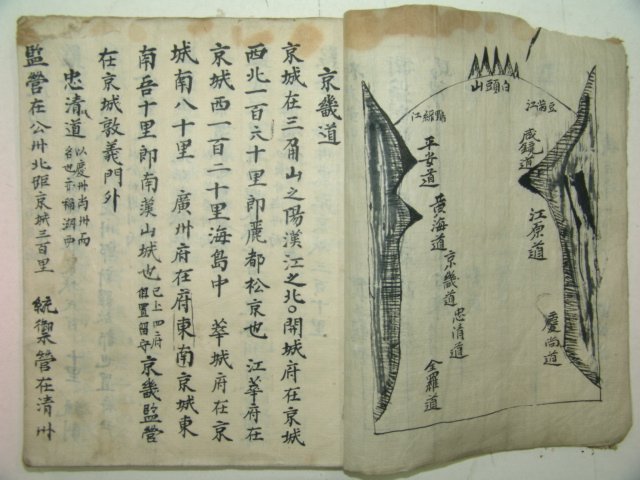 京畿道
京城在三角山之陽漢江之北○開城府在京城
西北一百六十里即麗都松京也 江華府在
京城西一百二十里海島中 華城府在京
城南八十里 廣州府在府東南京城東
南五十里即南漢山城也 已上四府俱置留守 京畿監營
在京城敦義門外
忠清道
監營在公州北距京城三百里 統禦營在清州
白頭山
豆滿江
鴨綠江
咸鏡道
平安道
江原道
黃海道
京畿道
忠清道
慶尚道
全羅道